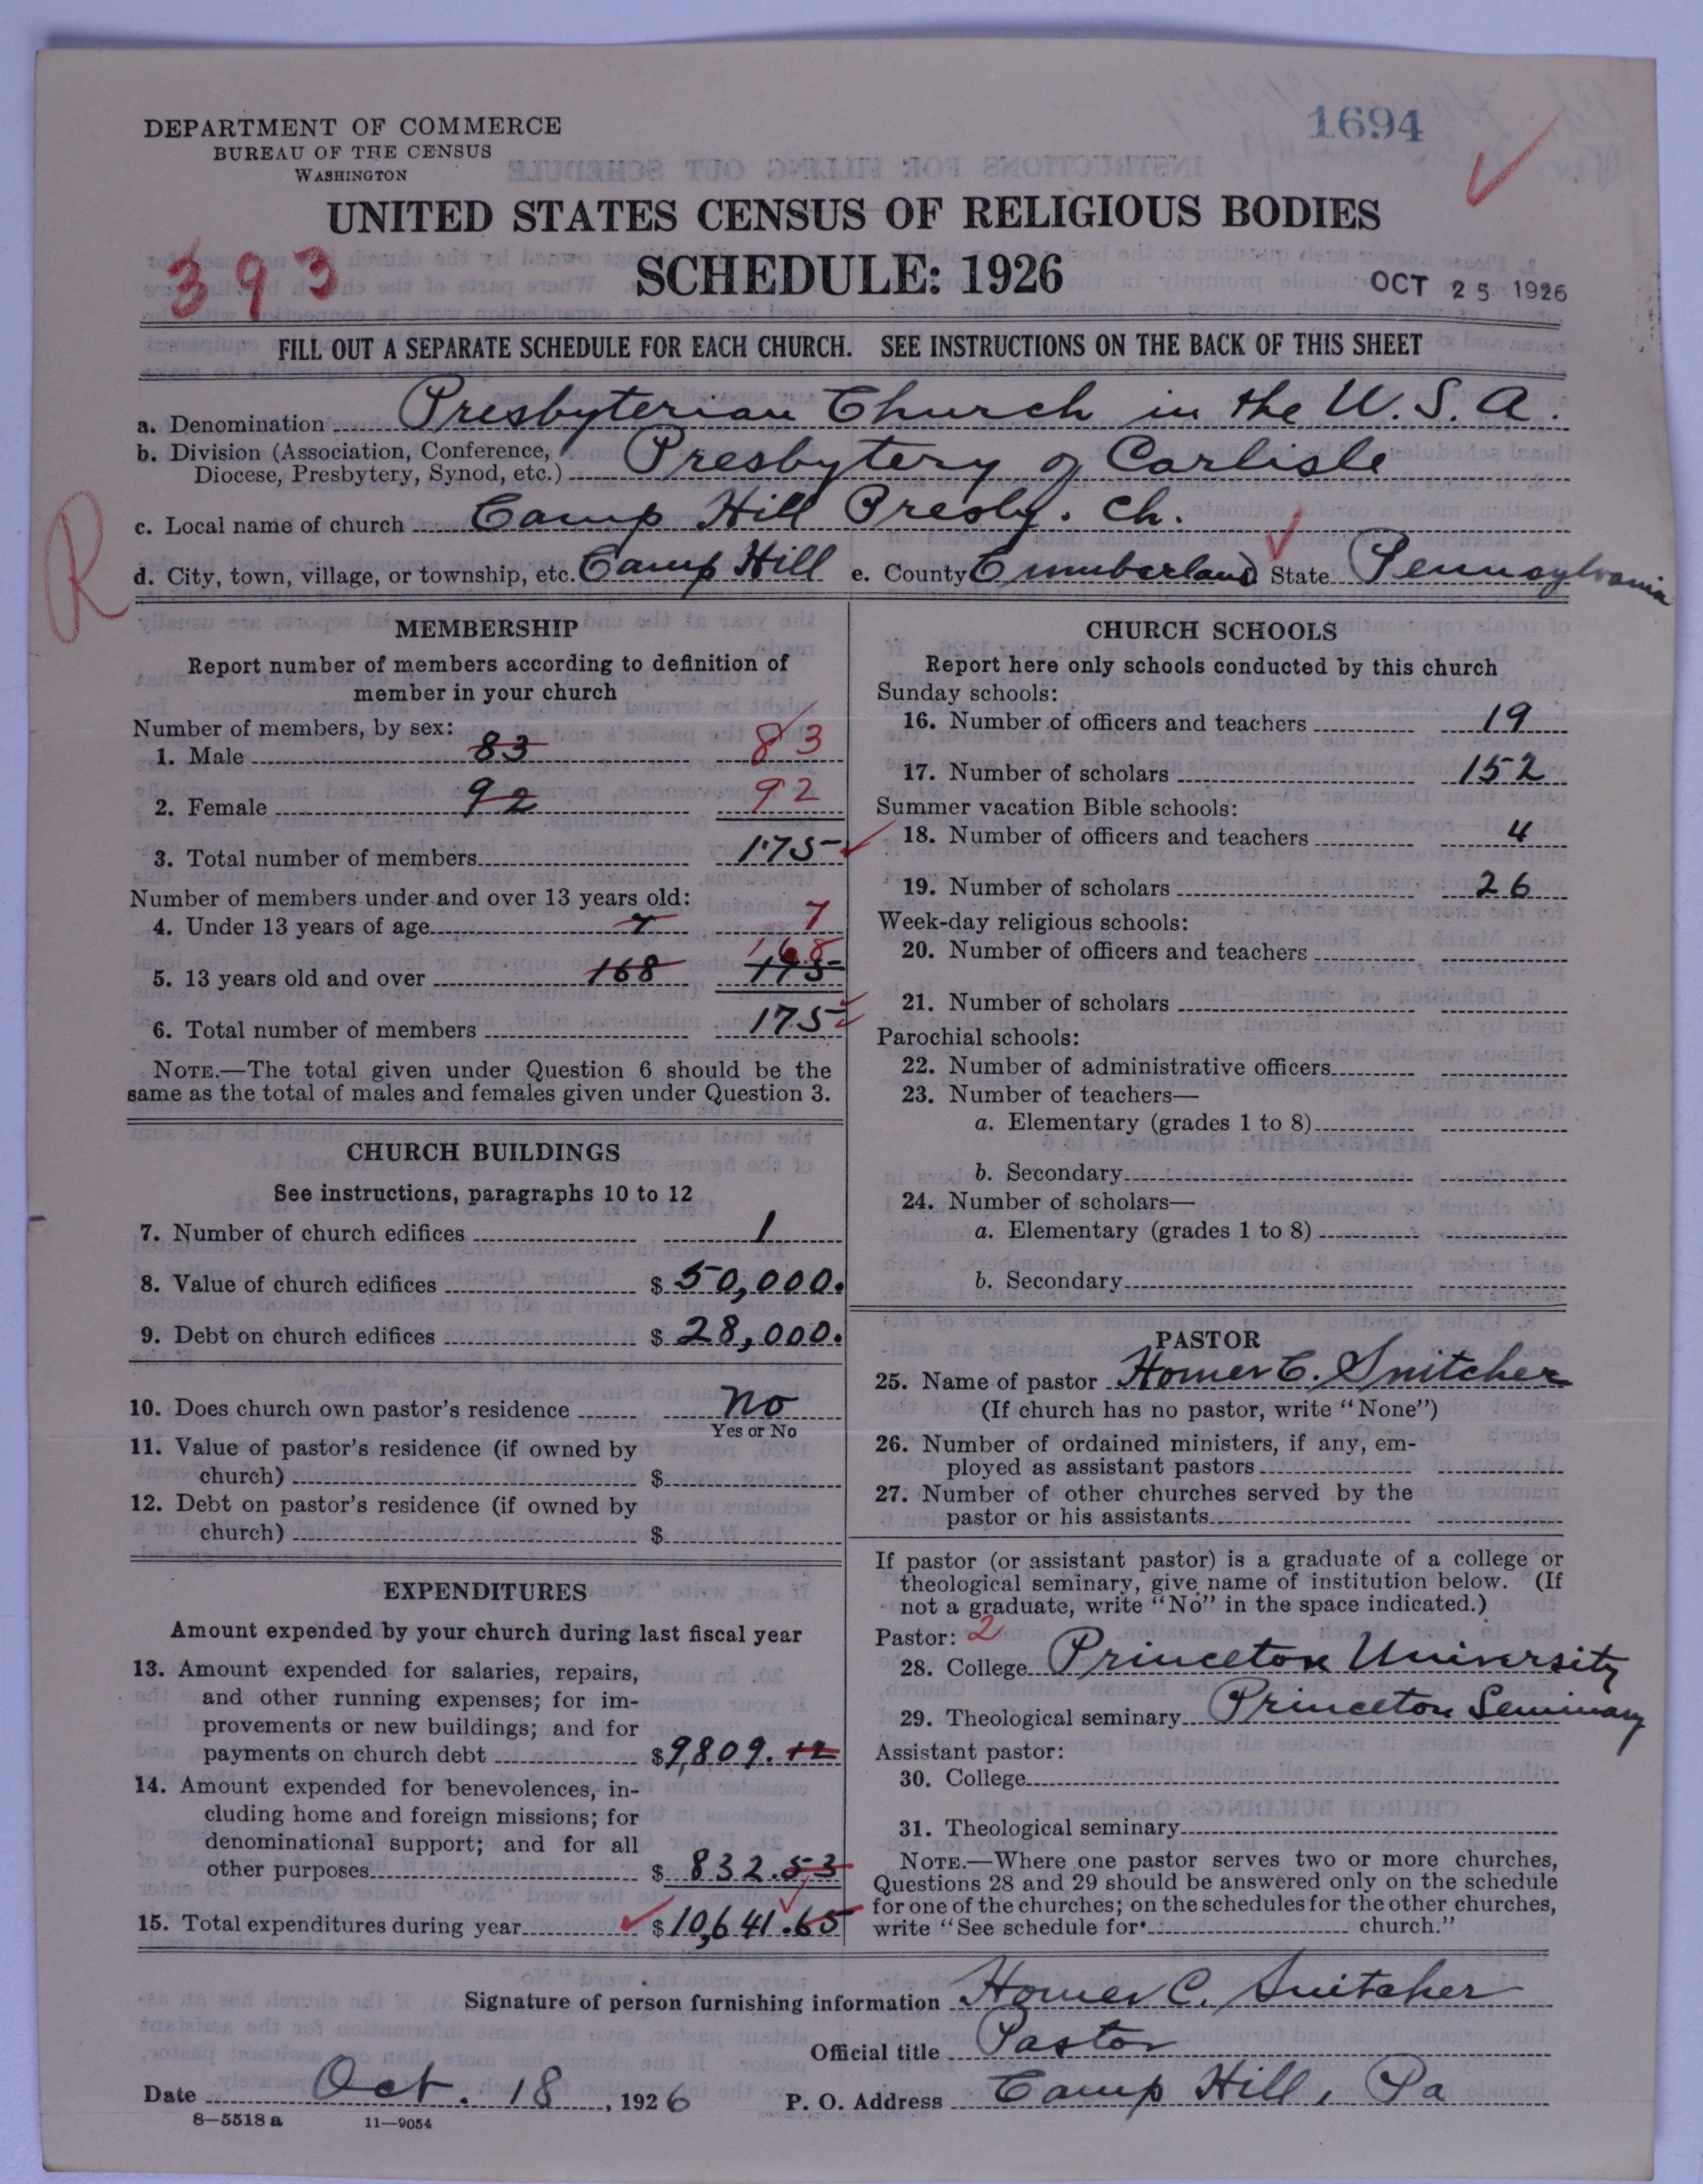 1694
DEPARTMENT OF COMMERCE
BUREAU OF THE CENSUS
WASHINGTON
UNITED STATES CENSUS OF RELIGIOUS BODIES
393
SCHEDULE: 1926
OCT 25 1926
FILL OUT A SEPARATE SCHEDULE FOR EACH CHURCH. SEE INSTRUCTIONS ON THE BACK OF THIS SHEET
a. Denomination Presbyterian Church in the U.S.A.
b. Division (Association, Conference,
Diocese, Presbytery, Synod, etc.) Presbytery of Carlisle
R
c. Local name of church Camp Hill Presby. Ch.
d. City, town, village, or township, etc. Camp Hill e. County Cumberland State Pennsylvania
MEMBERSHIP
Report number of members according to definition of
member in your church
Number of members, by sex:
1. Male 83 83
2. Female 92 92
3. Total number of members 175
Number of members under and over 13 years old:
4. Under 13 years of age 7 7
168
5. 13 years old and over 168 175
6. Total number of members 175
NOTE.—The total given under Question 6 should be the
same as the total of males and females given under Question 3.
CHURCH BUILDINGS
See instructions, paragraphs 10 to 12
7. Number of church edifices 1
8. Value of church edifices $ 50,000.
9. Debt on church edifices $ 28,000.
10. Does church own pastor's residence No
Yes or No
11. Value of pastor's residence (if owned by
church) $
12. Debt on pastor's residence (if owned by
church) $
EXPENDITURES
Amount expended by your church during last fiscal year
13. Amount expended for salaries, repairs,
and other running expenses; for im-
provements or new buildings; and for
payments on church debt $9,809.12
14. Amount expended for benevolences, in-
cluding home and foreign missions; for
denominational support; and for all
other purposes $ 832.53
15. Total expenditures during year $10,641.65
CHURCH SCHOOLS
Report here only schools conducted by this church
Sunday schools:
16. Number of officers and teachers 19
17. Number of scholars 152
Summer vacation Bible schools:
18. Number of officers and teachers 4
19. Number of scholars 26
Week-day religious schools:
20. Number of officers and teachers
21. Number of scholars
Parochial schools:
22. Number of administrative officers
23. Number of teachers—
a. Elementary (grades 1 to 8)
b. Secondary
24. Number of scholars—
a. Elementary (grades 1 to 8)
b. Secondary
PASTOR
25. Name of pastor Homer C. Snitcher
(If church has no pastor, write "None")
26. Number of ordained ministers, if any, em-
ployed as assistant pastors
27. Number of other churches served by the
pastor or his assistants
If pastor (or assistant pastor) is a graduate of a college or
theological seminary, give name of institution below. (If
not a graduate, write "No" in the space indicated.)
Pastor: 2
28. College Princeton University
29. Theological seminary Princeton Seminary
Assistant pastor:
30. College
31. Theological seminary
NOTE.—Where one pastor serves two or more churches,
Questions 28 and 29 should be answered only on the schedule
for one of the churches; on the schedules for the other churches,
write "See schedule for church."
Signature of person furnishing information Homer C. Snitcher
Official title Pastor
Date Oct. 18, 1926 P. O. Address Camp Hill, Pa
8—5518 a 11—9054